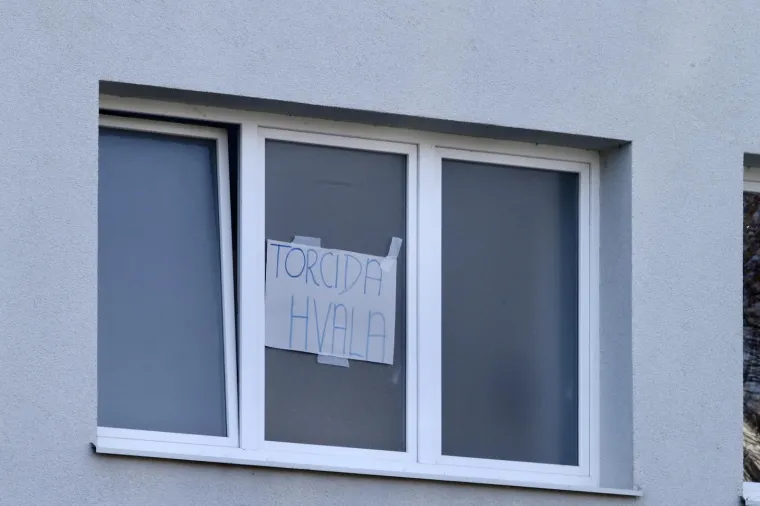 TORCIDA
HVALA